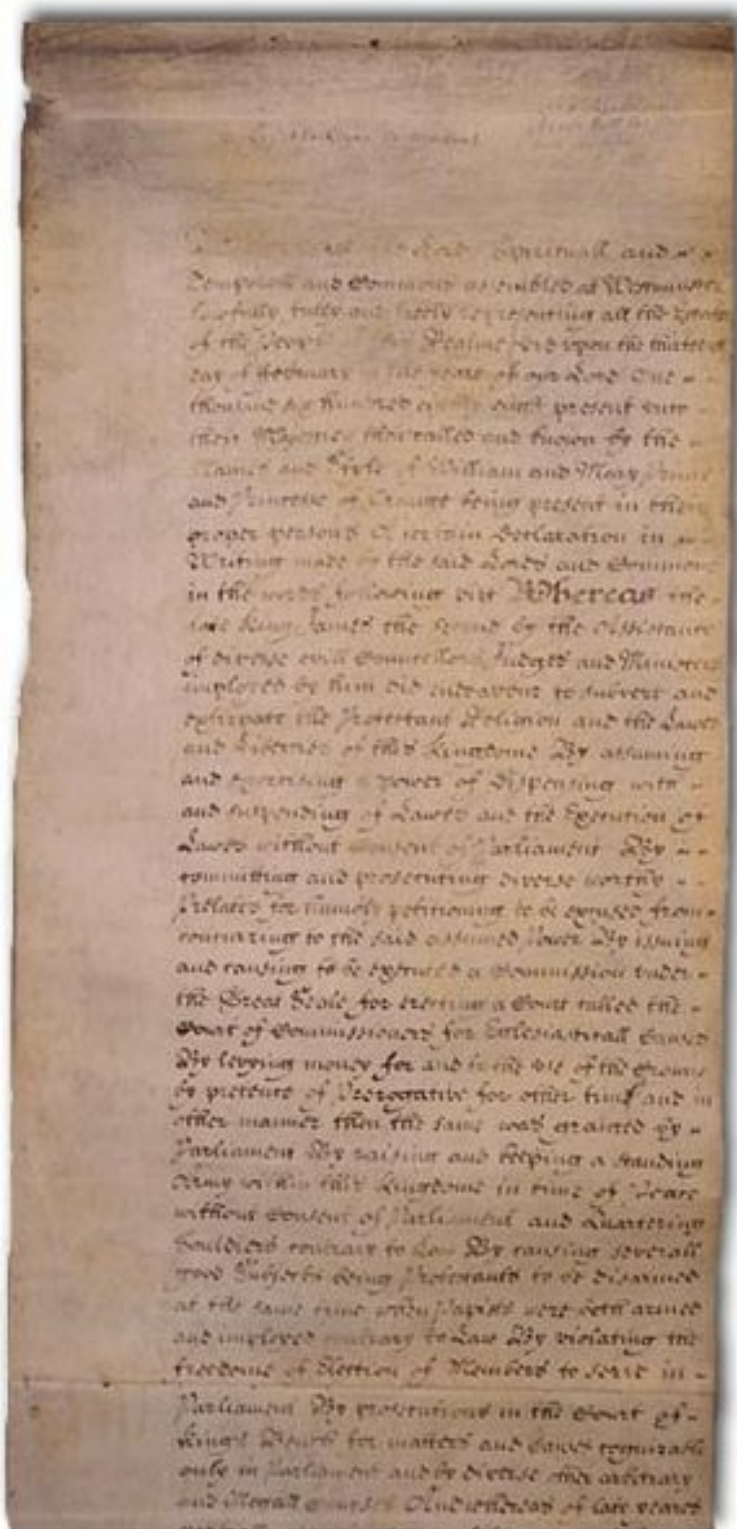 Lords Spirituall and
Temporall and Commons assembled at Westminster
lawfully fully and freely representing all the Estates
of the People of this Realme did upon the thirteenth
day of February in the yeare of our Lord One
thousand six hundred eighty eight present unto
their Majesties then called and knowne by the
Names and Stile of William and Mary Prince
and Princesse of Orange being present in their
proper persons A certain Declaration in
Writing made by the said Lords and Commons
in the words following vizt Whereas the
late King James the second by the Assistance
of diverse evill Councellors Judges and Ministers
imployed by him did endeavour to subvert and
extirpate the Protestant Religion and the Lawes
and Liberties of this Kingdome By assuming
and exercising a power of Dispensing with
and suspending of Lawes and the Execution of
Lawes without Consent of Parliament By
committing and prosecuting diverse worthy
Prelates for humbly petitioning to be excused from
concurring to the said assumed Power By issuing
and causing to be executed a Commission under
the Great Seale for erecting a Court called the
Court of Commissioners for Ecclesiasticall Causes
By levying money for and to the use of the Crowne
by pretence of Prerogative for other time and in
other manner then the same was granted by
Parliament By raising and keeping a standing
Army within this Kingdome in time of Peace
without Consent of Parliament and Quartering
Souldiers contrary to Law By causing severall
good Subjects being Protestants to be disarmed
at the same time when Papists were both armed
and imployed contrary to Law By violating the
freedome of Election of Members to serve in
Parliament By prosecutions in the Court of
Kings Bench for matters and Causes cognizable
only in Parliament and by diverse other arbitrary
and illegall courses And whereas of late yeares